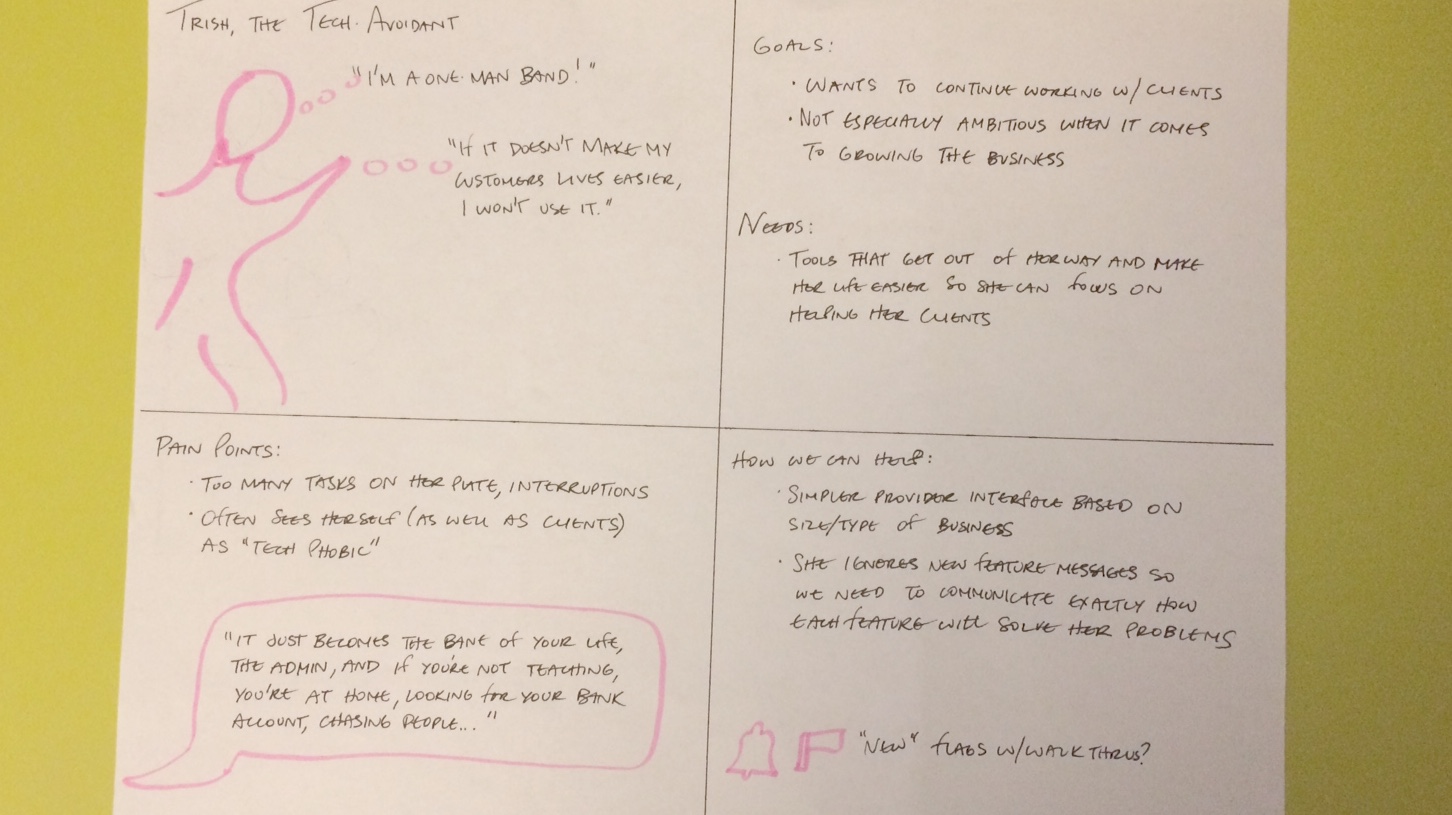 TRISH, THE TECH-AVOIDANT
"I'M A ONE-MAN BAND!"
"IF IT DOESN'T MAKE MY
CUSTOMERS LIVES EASIER,
I WON'T USE IT."
GOALS:
• WANTS TO CONTINUE WORKING W/ CLIENTS
• NOT ESPECIALLY AMBITIOUS WHEN IT COMES
TO GROWING THE BUSINESS
NEEDS:
• TOOLS THAT GET OUT OF HER WAY AND MAKE
HER LIFE EASIER SO SHE CAN FOCUS ON
HELPING HER CLIENTS
PAIN POINTS:
• TOO MANY TASKS ON HER PLATE, INTERRUPTIONS
• OFTEN SEES HERSELF (AS WELL AS CLIENTS)
AS "TECH PHOBIC"
"IT JUST BECOMES THE BANE OF YOUR LIFE,
THE ADMIN, AND IF YOU'RE NOT TEACHING,
YOU'RE AT HOME, LOOKING FOR YOUR BANK
ACCOUNT, CHASING PEOPLE..."
HOW WE CAN HELP:
• SIMPLER PROVIDER INTERFACE BASED ON
SIZE/TYPE OF BUSINESS
• SHE IGNORES NEW FEATURE MESSAGES SO
WE NEED TO COMMUNICATE EXACTLY HOW
EACH FEATURE WILL SOLVE HER PROBLEMS
"NEW" FLAGS W/ WALK THRUS?